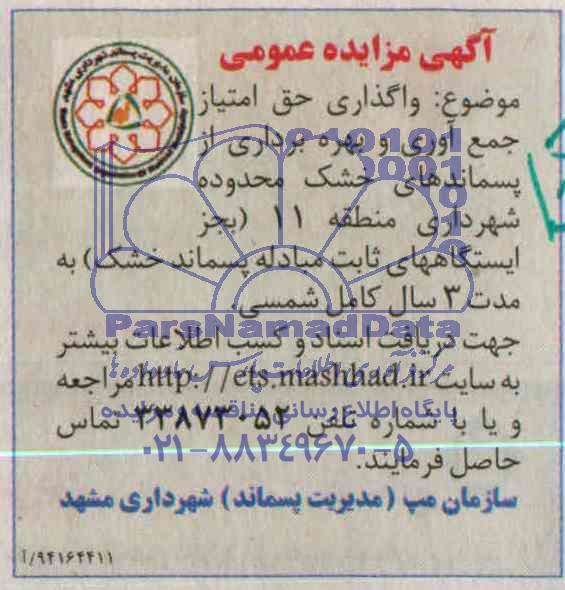 آگهی مزایده عمومی
موضوع: واگذاری حق امتیاز
جمع آوری و بهره برداری از
پسماندهای خشک محدوده
شهرداری منطقه ۱۱ (بجز
ایستگاههای ثابت مبادله پسماند خشک) به
مدت ۳ سال کامل شمسی.
ParsNamadData
جهت دریافت اسناد و کسب اطلاعات بیشتر
به سایت http://ets.mashhad.ir مراجعه
پایگاه اطلاع رسانی مناقصه و مزایده
و یا با شماره تلفن ۳۳۸۷۳۰۵۲ تماس
۰۲۱-۸۸۳۴۹۶۷۰-۵
حاصل فرمایند.
سازمان مپ (مدیریت پسماند) شهرداری مشهد
۹۴۱۶۴۴۱۱/آ